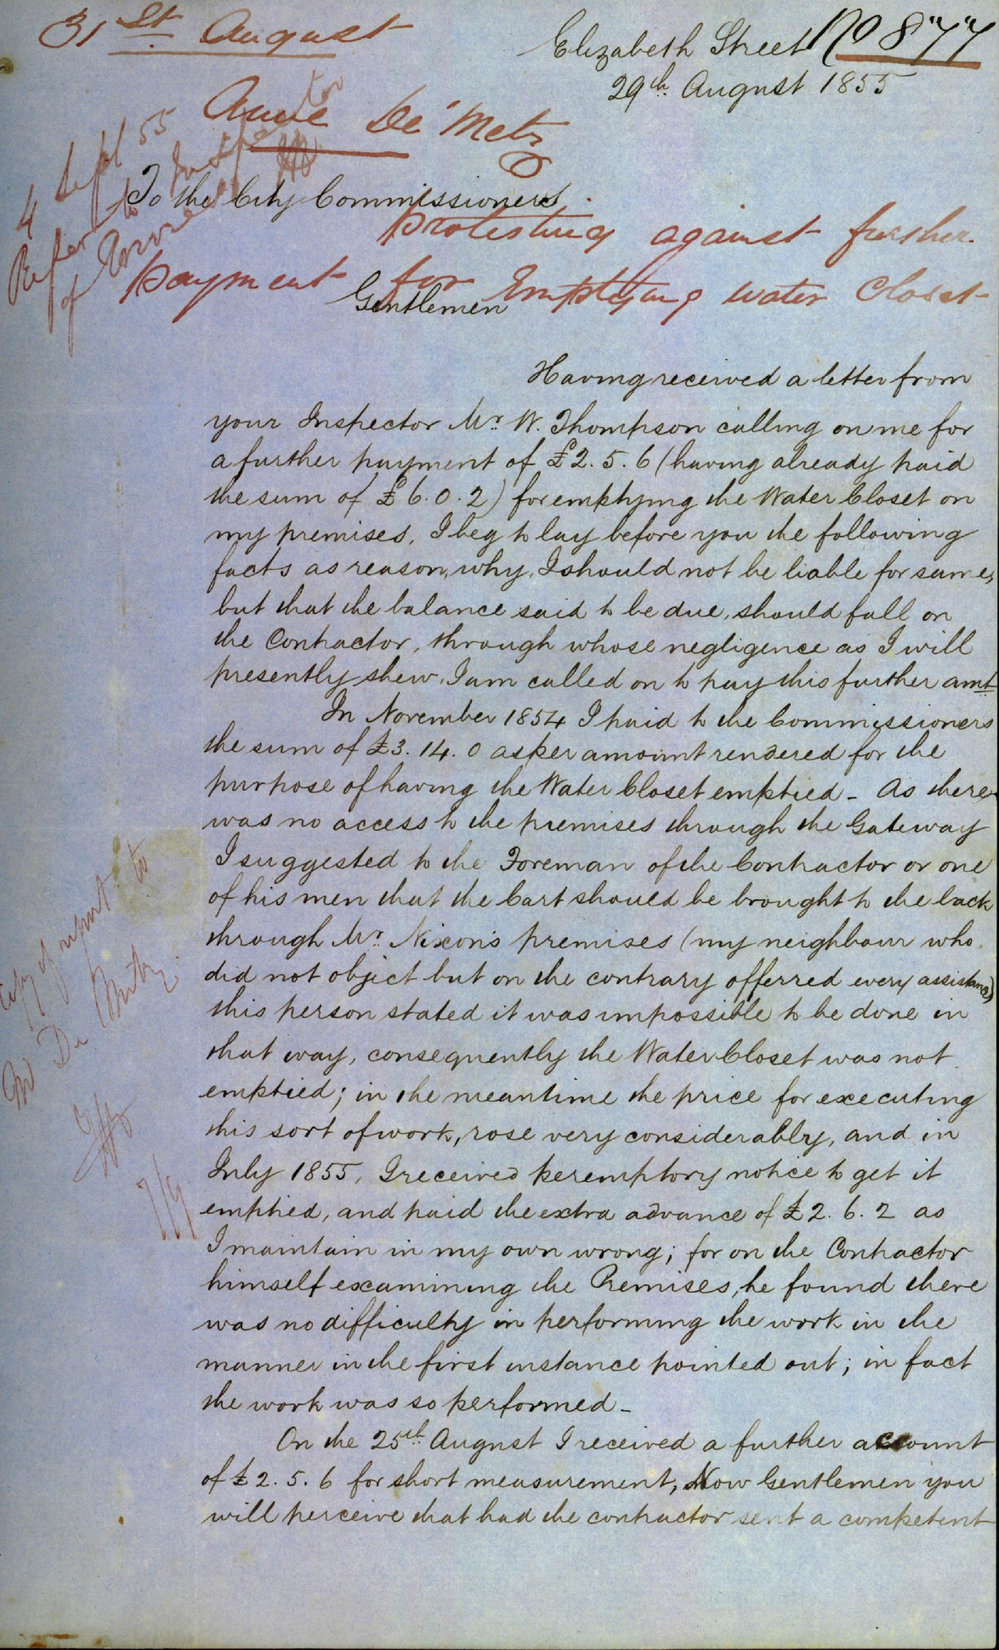 31st. August
Elizabeth Street No 877
29th. August 1855
Annie De Metz
4 Sept 55
Refer to Inspector
of
To the City Commissioners.
protesting against further
payment for Emptying water closet
Gentlemen
Having received a letter from
your Inspector Mr. W. Thompson calling on me for
a further payment of £2.5.6 (having already paid
the sum of £6.0.2) for emptying the Water Closet on
my premises, I beg to lay before you the following
facts as reason, why, I should not be liable for same,
but that the balance said to be due, should fall on
the Contractor, through whose negligence as I will
presently shew, I am called on to pay this further amt
In November 1854 I paid to the Commissioners
the sum of £3.14.0 as per amount rendered for the
purpose of having the Water Closet emptied - As there
was no access to the premises through the Gateway
I suggested to the Foreman of the Contractor or one
of his men that the Cart should be brought to the back
through Mr. Nixon's premises (my neighbour who
did not object but on the contrary offerred every assistance)
this person stated it was impossible to be done in
that way, consequently the Water Closet was not
emptied; in the meantime the price for executing
this sort of work, rose very considerably, and in
July 1855, I received peremptory notice to get it
emptied, and paid the extra advance of £2.6.2 as
I maintain in my own wrong; for on the Contractor
himself examining the Premises, he found there
was no difficulty in performing the work in the
manner in the first instance pointed out; in fact
the work was so performed -
On the 25th August I received a further account
of £2.5.6 for short measurement, Now Gentlemen you
will perceive that had the contractor sent a competent
Copy of report to
Mr De
7/9